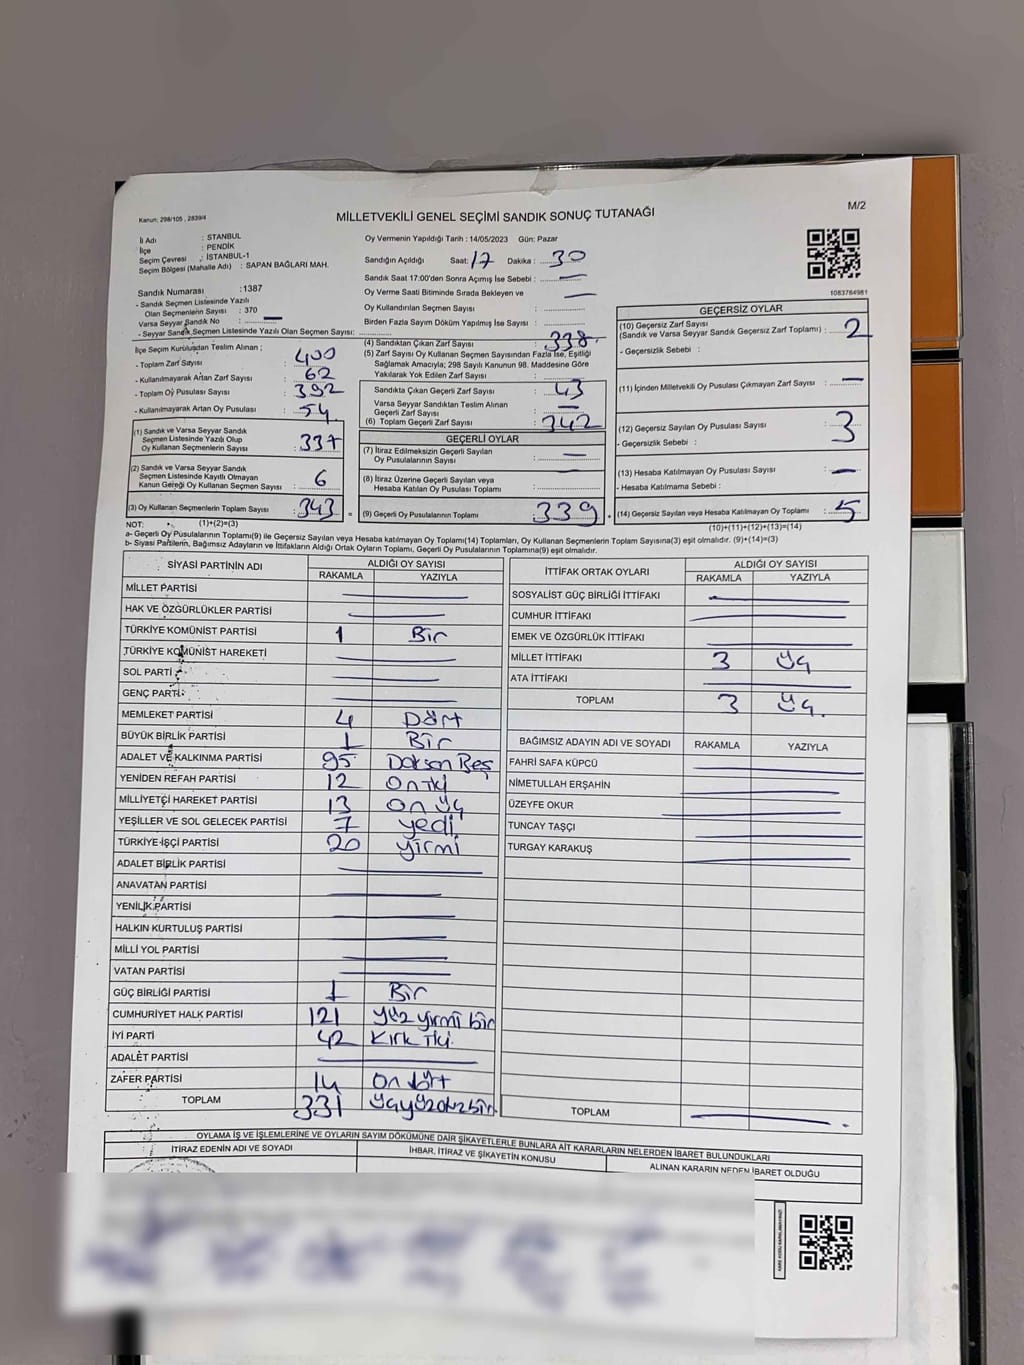 Kanun; 298/105 , 2839/4
MİLLETVEKİLİ GENEL SEÇİMİ SANDIK SONUÇ TUTANAĞI
M/2
İl Adı : STANBUL
İlçe : PENDİK
Seçim Çevresi : İSTANBUL-1
Seçim Bölgesi (Mahalle Adı) : SAPAN BAĞLARI MAH.
Sandık Numarası :1387
- Sandık Seçmen Listesinde Yazılı
Olan Seçmenlerin Sayısı : 370
Varsa Seyyar Sandık No : —
- Seyyar Sandık Seçmen Listesinde Yazılı Olan Seçmen Sayısı:
Oy Vermenin Yapıldığı Tarih : 14/05/2023 Gün: Pazar
Sandığın Açıldığı Saat: 17 Dakika : 30
Sandık Saat 17:00'den Sonra Açımış İse Sebebi : —
Oy Verme Saati Bitiminde Sırada Bekleyen ve —
Oy Kullandırılan Seçmen Sayısı :
Birden Fazla Sayım Döküm Yapılmış İse Sayısı :
1083764981
İlçe Seçim Kurulundan Teslim Alınan ;
- Toplam Zarf Sayısı : 400
- Kullanılmayarak Artan Zarf Sayısı : 62
- Toplam Oy Pusulası Sayısı : 392
- Kullanılmayarak Artan Oy Pusulası : 54
(1) Sandık ve Varsa Seyyar Sandık
Seçmen Listesinde Yazılı Olup
Oy Kullanan Seçmenlerin Sayısı : 337
(2) Sandık ve Varsa Seyyar Sandık
Seçmen Listesinde Kayıtlı Olmayan
Kanun Gereği Oy Kullanan Seçmen Sayısı : 6
(3) Oy Kullanan Seçmenlerin Toplam Sayısı : 343
(4) Sandıktan Çıkan Zarf Sayısı : 338
(5) Zarf Sayısı Oy Kullanan Seçmen Sayısından Fazla İse, Eşitliği
Sağlamak Amacıyla; 298 Sayılı Kanunun 98. Maddesine Göre
Yakılarak Yok Edilen Zarf Sayısı :
Sandıkta Çıkan Geçerli Zarf Sayısı : 43
Varsa Seyyar Sandıktan Teslim Alınan
Geçerli Zarf Sayısı : —
(6) Toplam Geçerli Zarf Sayısı : 342
GEÇERLİ OYLAR
(7) İtiraz Edilmeksizin Geçerli Sayılan
Oy Pusulalarının Sayısı : —
(8) İtiraz Üzerine Geçerli Sayılan veya
Hesaba Katılan Oy Pusulası Toplamı :
= (9) Geçerli Oy Pusulalarının Toplamı 339
GEÇERSİZ OYLAR
(10) Geçersiz Zarf Sayısı
(Sandık ve Varsa Seyyar Sandık Geçersiz Zarf Toplamı) : 2
- Geçersizlik Sebebi :
(11) İçinden Milletvekili Oy Pusulası Çıkmayan Zarf Sayısı : —
(12) Geçersiz Sayılan Oy Pusulası Sayısı : 3
- Geçersizlik Sebebi :
(13) Hesaba Katılmayan Oy Pusulası Sayısı : —
- Hesaba Katılmama Sebebi :
(14) Geçersiz Sayılan veya Hesaba Katılmayan Oy Toplamı : 5
NOT: (1)+(2)=(3)
(10)+(11)+(12)+(13)=(14)
a- Geçerli Oy Pusulaların Toplamı(9) ile Geçersiz Sayılan veya Hesaba katılmayan Oy Toplamı(14) Toplamları, Oy Kullanan Seçmenlerin Toplam Sayısına(3) eşit olmalıdır. (9)+(14)=(3)
b- Siyasi Partilerin, Bağımsız Adayların ve İttifakların Aldığı Ortak Oyların Toplamı, Geçerli Oy Pusulalarının Toplamına(9) eşit olmalıdır.
SİYASİ PARTİNİN ADI ALDIĞI OY SAYISI
RAKAMLA YAZIYLA
MİLLET PARTİSİ —
HAK VE ÖZGÜRLÜKLER PARTİSİ —
TÜRKİYE KOMÜNİST PARTİSİ 1 Bir
TÜRKİYE KOMÜNİST HAREKETİ —
SOL PARTİ —
GENÇ PARTİ —
MEMLEKET PARTİSİ 4 Dört
BÜYÜK BİRLİK PARTİSİ 1 Bir
ADALET VE KALKINMA PARTİSİ 95 Doksan Beş
YENİDEN REFAH PARTİSİ 12 On iki
MİLLİYETÇİ HAREKET PARTİSİ 13 on üç
YEŞİLLER VE SOL GELECEK PARTİSİ 7 yedi
TÜRKİYE İŞÇİ PARTİSİ 20 yirmi
ADALET BİRLİK PARTİSİ —
ANAVATAN PARTİSİ —
YENİLİK PARTİSİ —
HALKIN KURTULUŞ PARTİSİ —
MİLLİ YOL PARTİSİ —
VATAN PARTİSİ —
GÜÇ BİRLİĞİ PARTİSİ 1 Bir
CUMHURİYET HALK PARTİSİ 121 yüz yirmi bir
İYİ PARTİ 42 Kırk iki
ADALET PARTİSİ —
ZAFER PARTİSİ 14 On dört
TOPLAM 331 üçyüzotuzbir
İTTİFAK ORTAK OYLARI ALDIĞI OY SAYISI
RAKAMLA YAZIYLA
SOSYALİST GÜÇ BİRLİĞİ İTTİFAKI —
CUMHUR İTTİFAKI —
EMEK VE ÖZGÜRLÜK İTTİFAKI —
MİLLET İTTİFAKI 3 üç
ATA İTTİFAKI —
TOPLAM 3 üç.
BAĞIMSIZ ADAYIN ADI VE SOYADI RAKAMLA YAZIYLA
FAHRİ SAFA KÜPCÜ —
NİMETULLAH ERŞAHİN —
ÜZEYFE OKUR —
TUNCAY TAŞÇI —
TURGAY KARAKUŞ —
TOPLAM —
OYLAMA İŞ VE İŞLEMLERİNE VE OYLARIN SAYIM DÖKÜMÜNE DAİR ŞİKAYETLERLE BUNLARA AİT KARARLARIN NELERDEN İBARET BULUNDUKLARI
İTİRAZ EDENİN ADI VE SOYADI İHBAR, İTİRAZ VE ŞİKAYETİN KONUSU ALINAN KARARIN NEDEN İBARET OLDUĞU